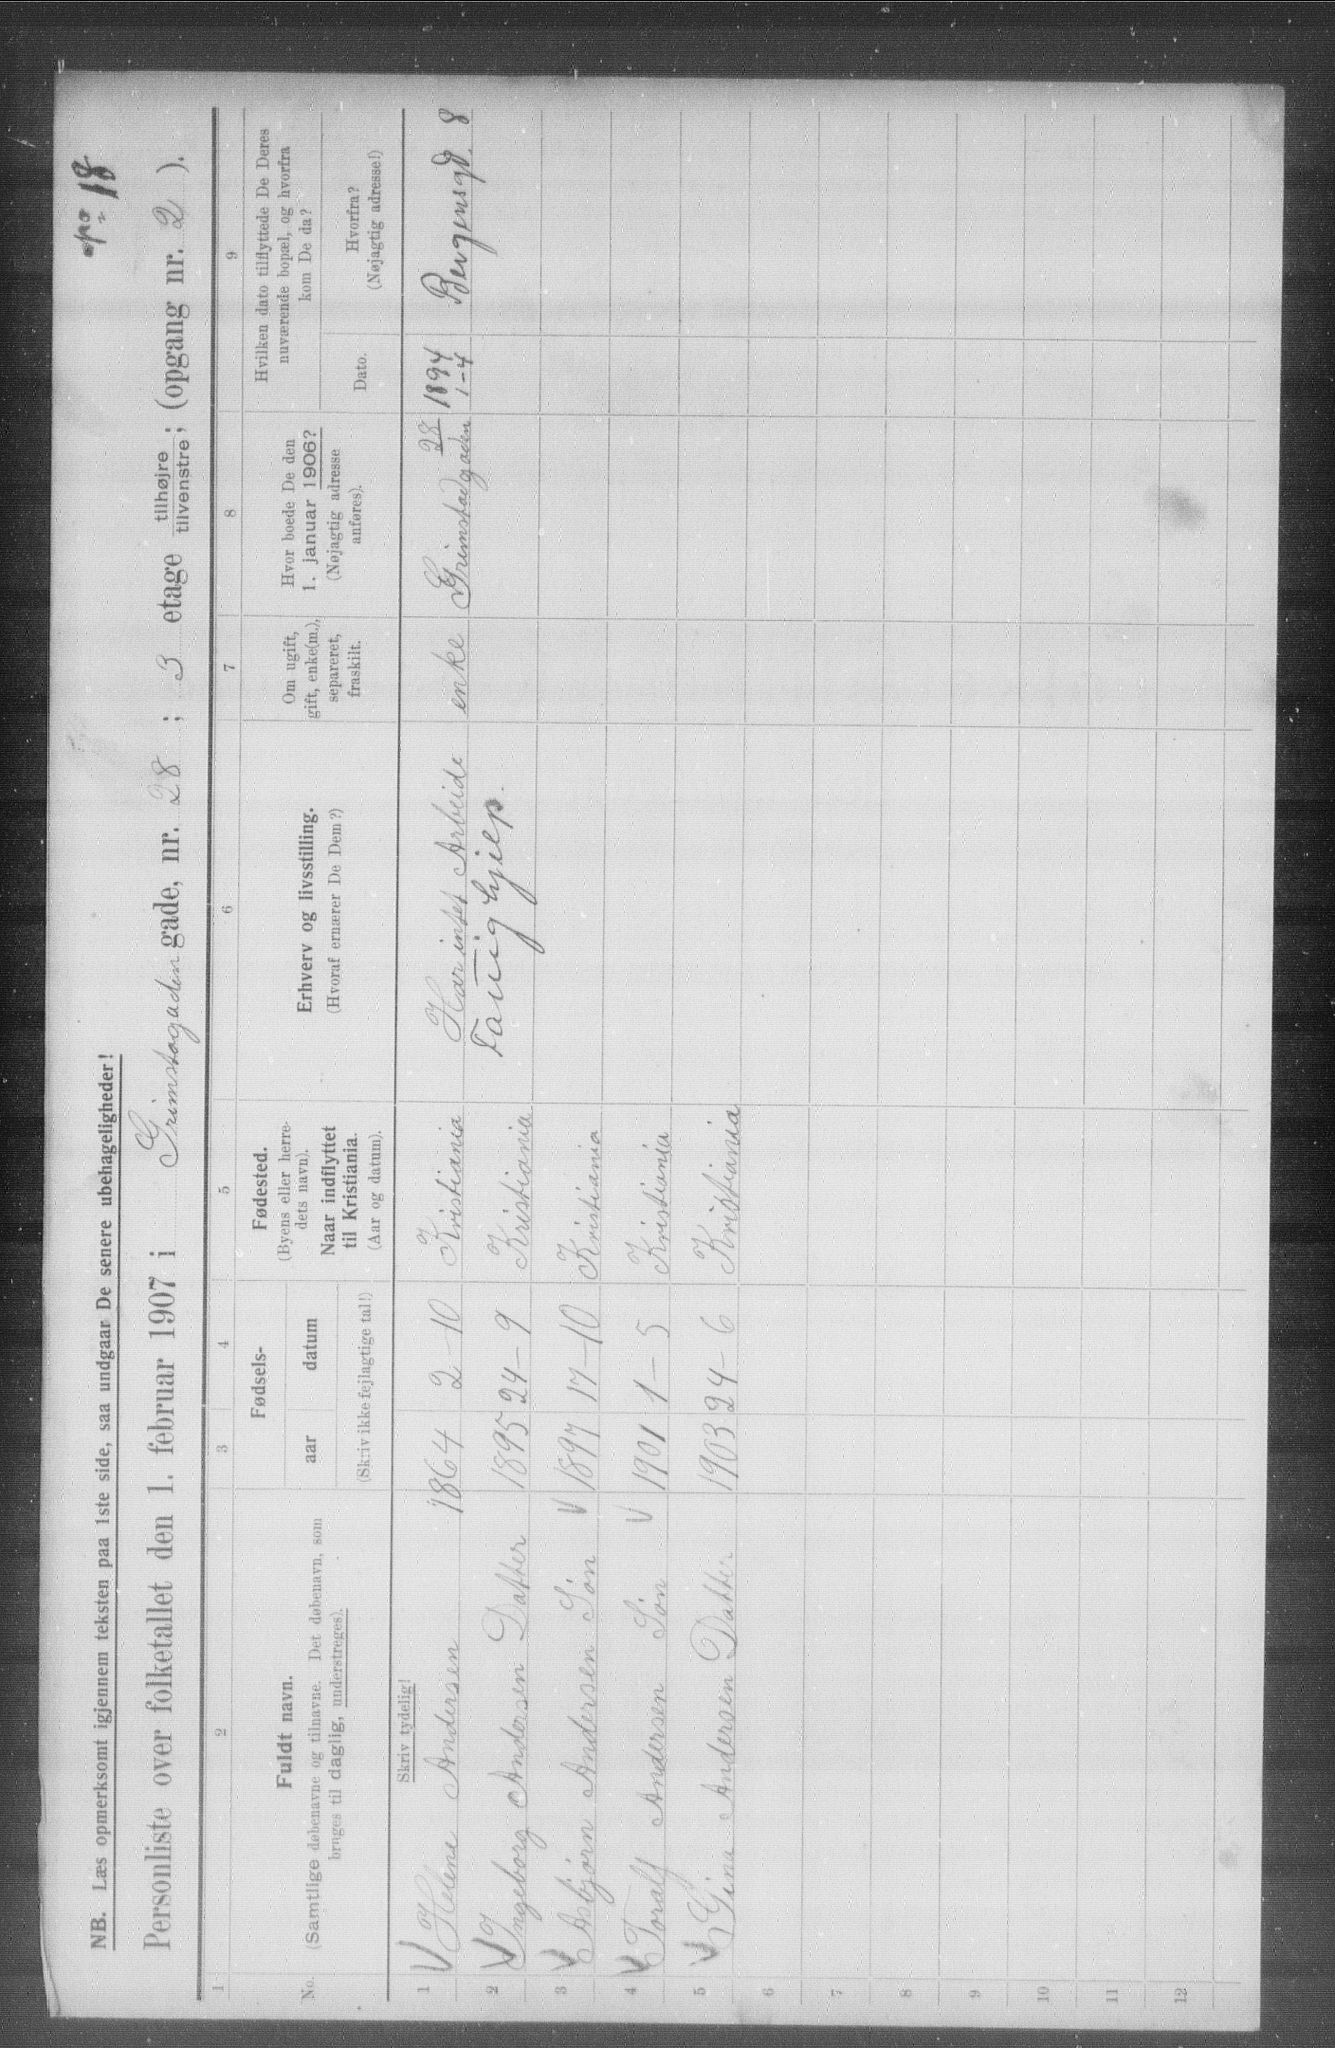 18
NB. Læs opmerksomt igjennem teksten paa 1ste side, saa undgaar De senere ubehageligheder!
Personliste over folketallet den 1. februar 1907 i Grimstagaden gade, nr. 28 ; 3 etage tilhøjre tilvenstre ; (opgang nr. 2 ).
1 2 3 4 5 6 7 8 9
No.
Fuldt navn.
(Samtlige døbenavne og tilnavne. Det døbenavn, som
bruges til daglig, understreges).
Fødsels-
aar datum
(Skriv ikke fejlagtige tal!)
Fødested.
(Byens eller herre-
dets navn).
Naar indflyttet
til Kristiania.
(Aar og datum).
Erhverv og livsstilling.
(Hvoraf ernærer De Dem?)
Om ugift,
gift, enke(m.),
separeret,
fraskilt.
Hvor boede De den
1. januar 1906?
(Nøjagtig adresse
anføres).
Hvilken dato tilflyttede De Deres
nuværende bopæl, og hvorfra
kom De da?
Dato.
Hvorfra?
(Nøjagtig adresse!)
Skriv tydelig!
1 Helene Andersen 1864 2-10 Kristiania Har intet Arbeide enke Grimstadgaden 28 1894 1-4 Bergensgd. 8
Fattighjelp.
2 Ingeborg Andersen Datter 1895 24-9 Kristiania
3 Asbjørn Andersen Søn 1897 17-10 Kristiania
4 Toralf Andersen Søn 1901 1-5 Kristiania
5 Gina Andersen Datter 1903 24-6 Kristiania
6
7
8
9
10
11
12